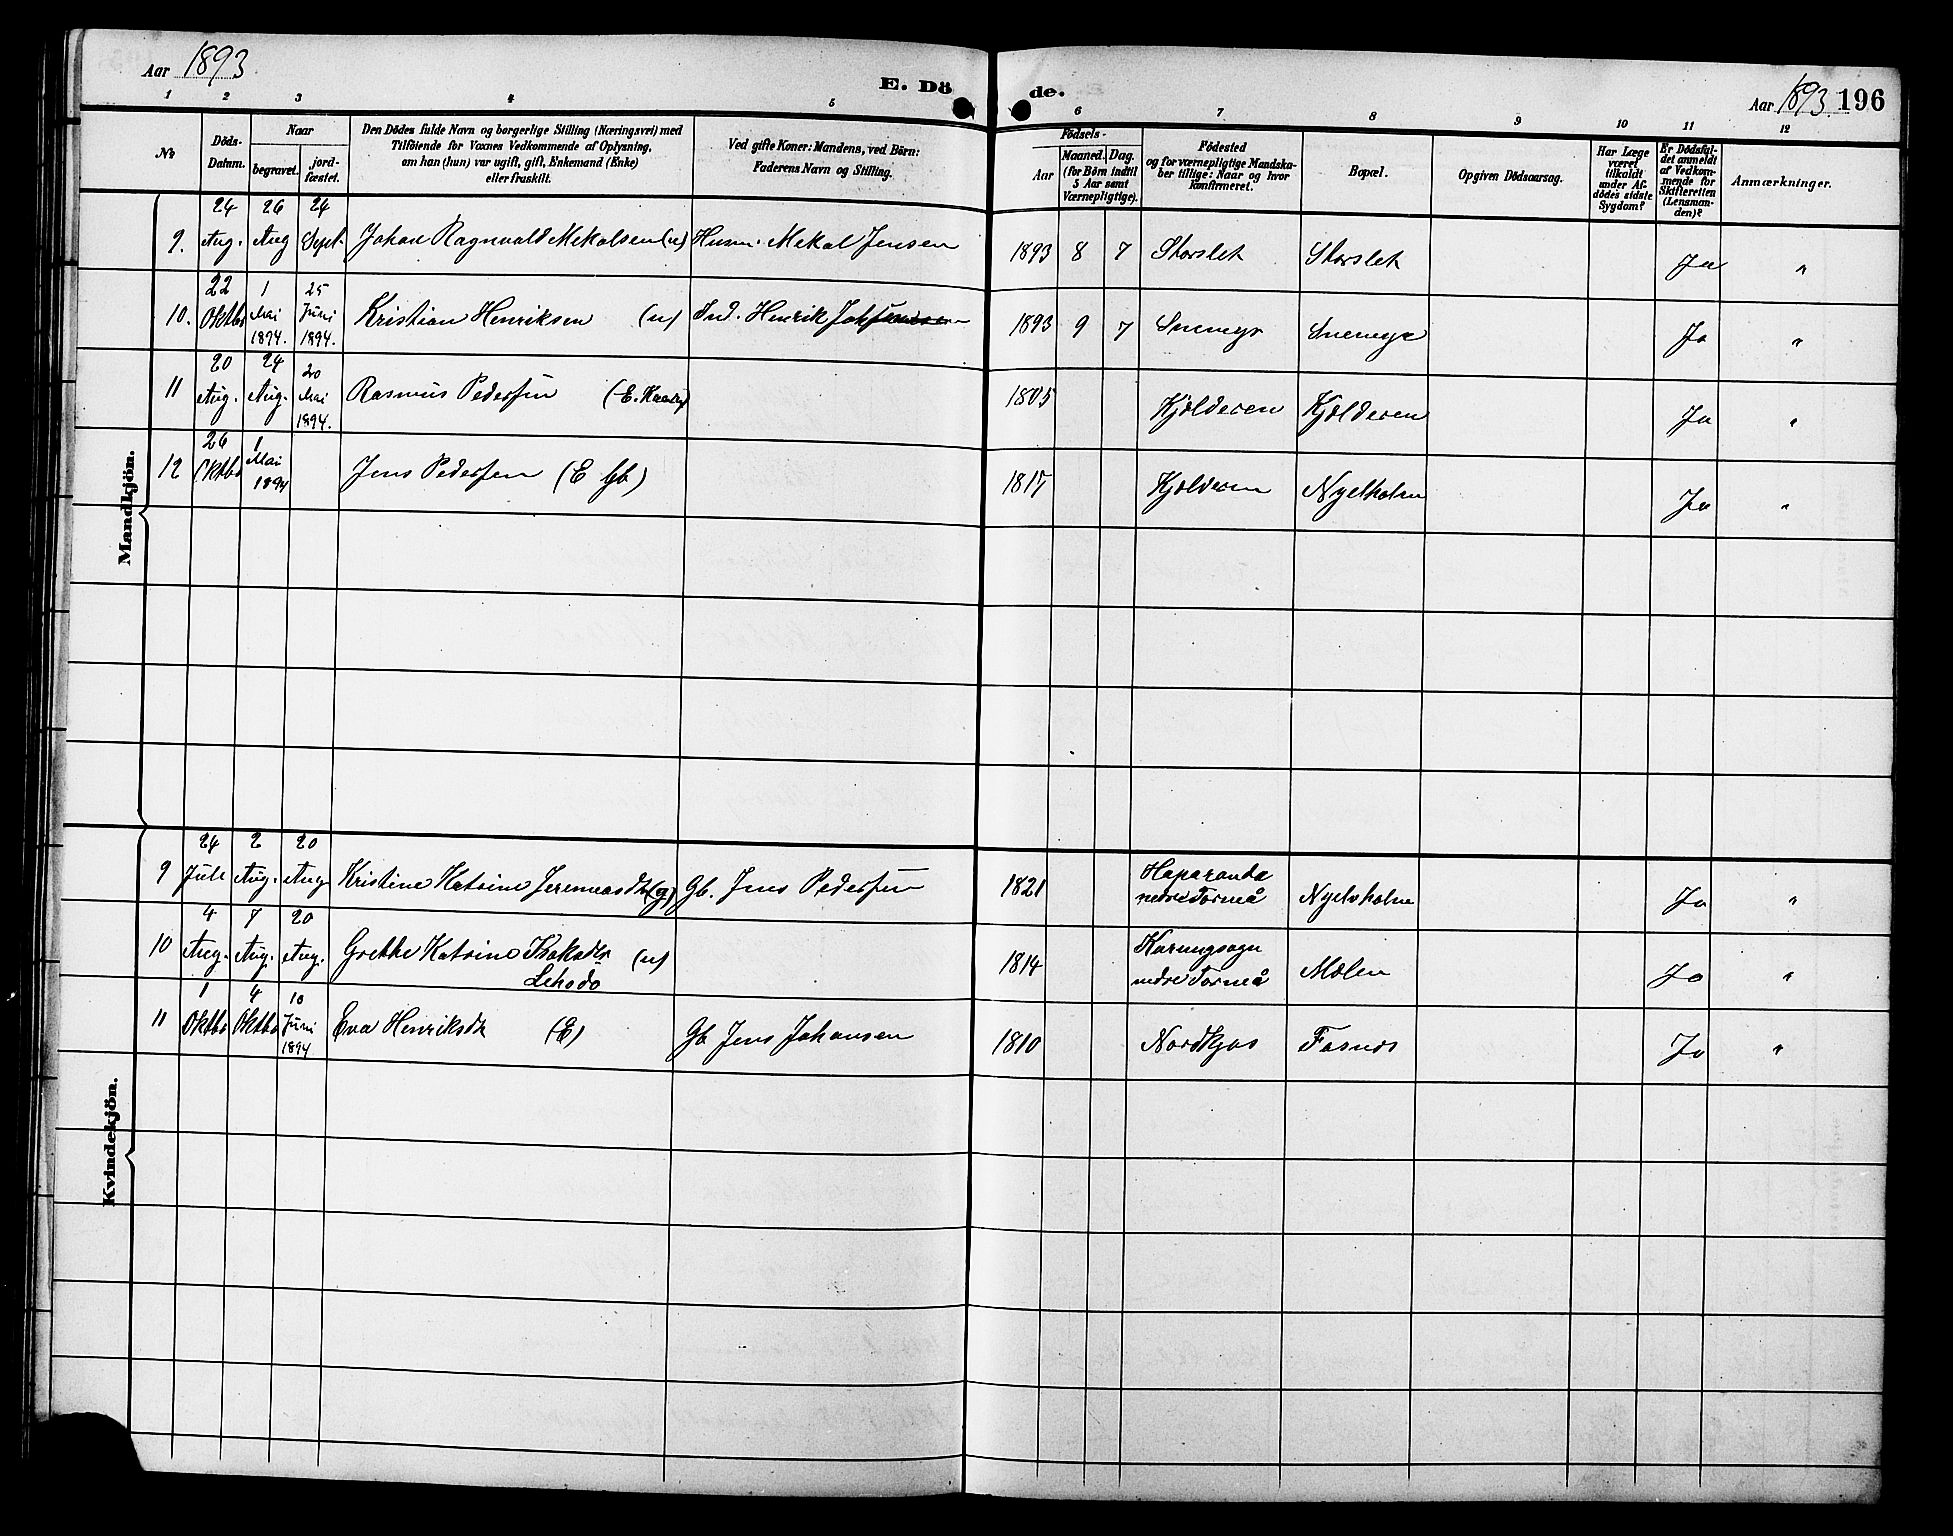 Aar 1893
E. Dö de.
Aar 1893 196
1 2 3 4 5 6 7 8 9 10 11 12
No
Döds-Datum.
Naar
begravet.
jord-fæstet.
Den Dödes fulde Navn og borgerlige Stilling (Næringsvei) med
Tilföiende for Voxnes Vedkommende af Oplysning,
om han (hun) var ugift, gift, Enkemand (Enke)
eller fraskilt.
Ved gifte Koner: Mandens, ved Börn:
Faderens Navn og Stilling.
Födsels-
Aar
Maaned. Dag.
(for Börn indtil
5 Aar samt
Værnepligtige).
Födested
og for værnepligtige Mandska-
ber tillige: Naar og hvor
konfirmeret.
Bopæl.
Opgiven Dödsaarsag.
Har Læge
været
tilkaldt
under Af-
dödes sidste
Sygdom?
Er Dödsfal-
det anmeldt
af Vedkom-
mende for
Skifteretten
(Lensman-
den)?
Anmærkninger.
Mandkjön.
9. 24 Aug. 26 Aug 24 Sept. Johan Ragnvald Mekalsen (u) Husm. Mekal Jensen 1893 8 7 Storslet Storslet Ja "
10. 22 Oktbr 1 Mai 1894. 25 Juni 1894. Kristian Henriksen (u) Ind. Henrik 1893 9 7 Snemyr Snemyr Ja "
11 20 Aug. 24 Aug. 20 Mai 1894. Rasmus Pedersen 1805 Kjelderen Kjelderen Ja "
12 26 Oktbr 1 Mai 1894 Jens Pedersen (E Gb) 1817 Kjelderen Nyelvholm Ja "
Kvindekjön.
9 24 Juli 2 Aug. 20 Aug Kristine Katrine Jeremiasdtr (g) Gb. Jens Pedersen 1821 Haparanda
nedre Torneå Nyelvholm Ja "
10 4 Aug. 7 Aug. 20 Aug. Grethe Katrine Isaksdtr (u) 1814 Karungsogn
nedre Torneå Molen Ja "
11 1 Oktbr 4 Oktbr 10 Juni 1894 Eva Henriksdtr (E) Gb Jens Johansen 1810 Nordkjos Fosnes Ja "